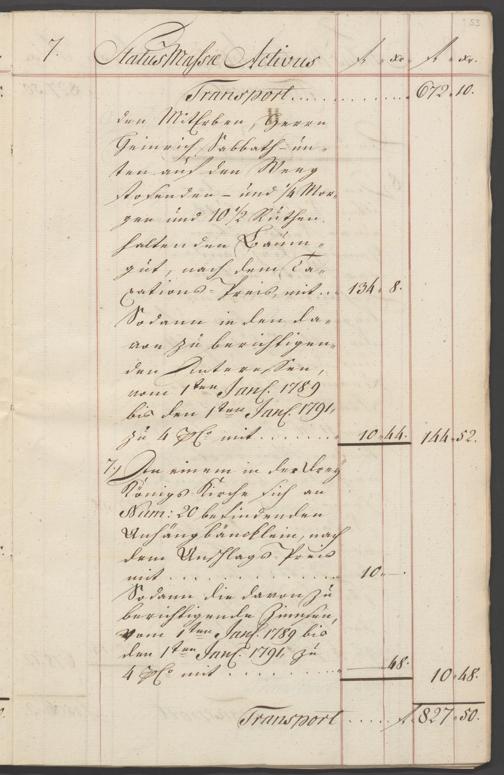 53
7. Status Massæ Activus f. xr. f. xr.
Transport . . . . . . . . . 672. 10.
den MitErben, Herrn
Heinrich Sabbath - un-
ten auf den Weeg
stosenden - und 1/4 Mor-
gen und 10 1/2 Ruthen
haltenden Baum-
gut, nach dem Ta-
xations-Preiß, mit . . 134. 8.
Sodann in den da-
von zu berichtigen-
den Interessen,
vom 1ten Jan. 1789
bis den 1ten Jan. 1791.
zu 4 pCo mit . . . . . . 10. 44. 144. 52.
7.) In einem in der Drey
Königs Kirche sich an
Num: 20 befindenden
Anhängbäncklein, nach
dem Anschlags-Preiß
mit . . . . . . . . . . 10. —
Sodann die davon zu
berichtigende Zinnsen,
vom 1ten Jan. 1789 bis
den 1ten Jan. 1791. zu
4 pCo mit . . . . . . . 48. 10. 48.
Transport . . . . . f. 827. 50.